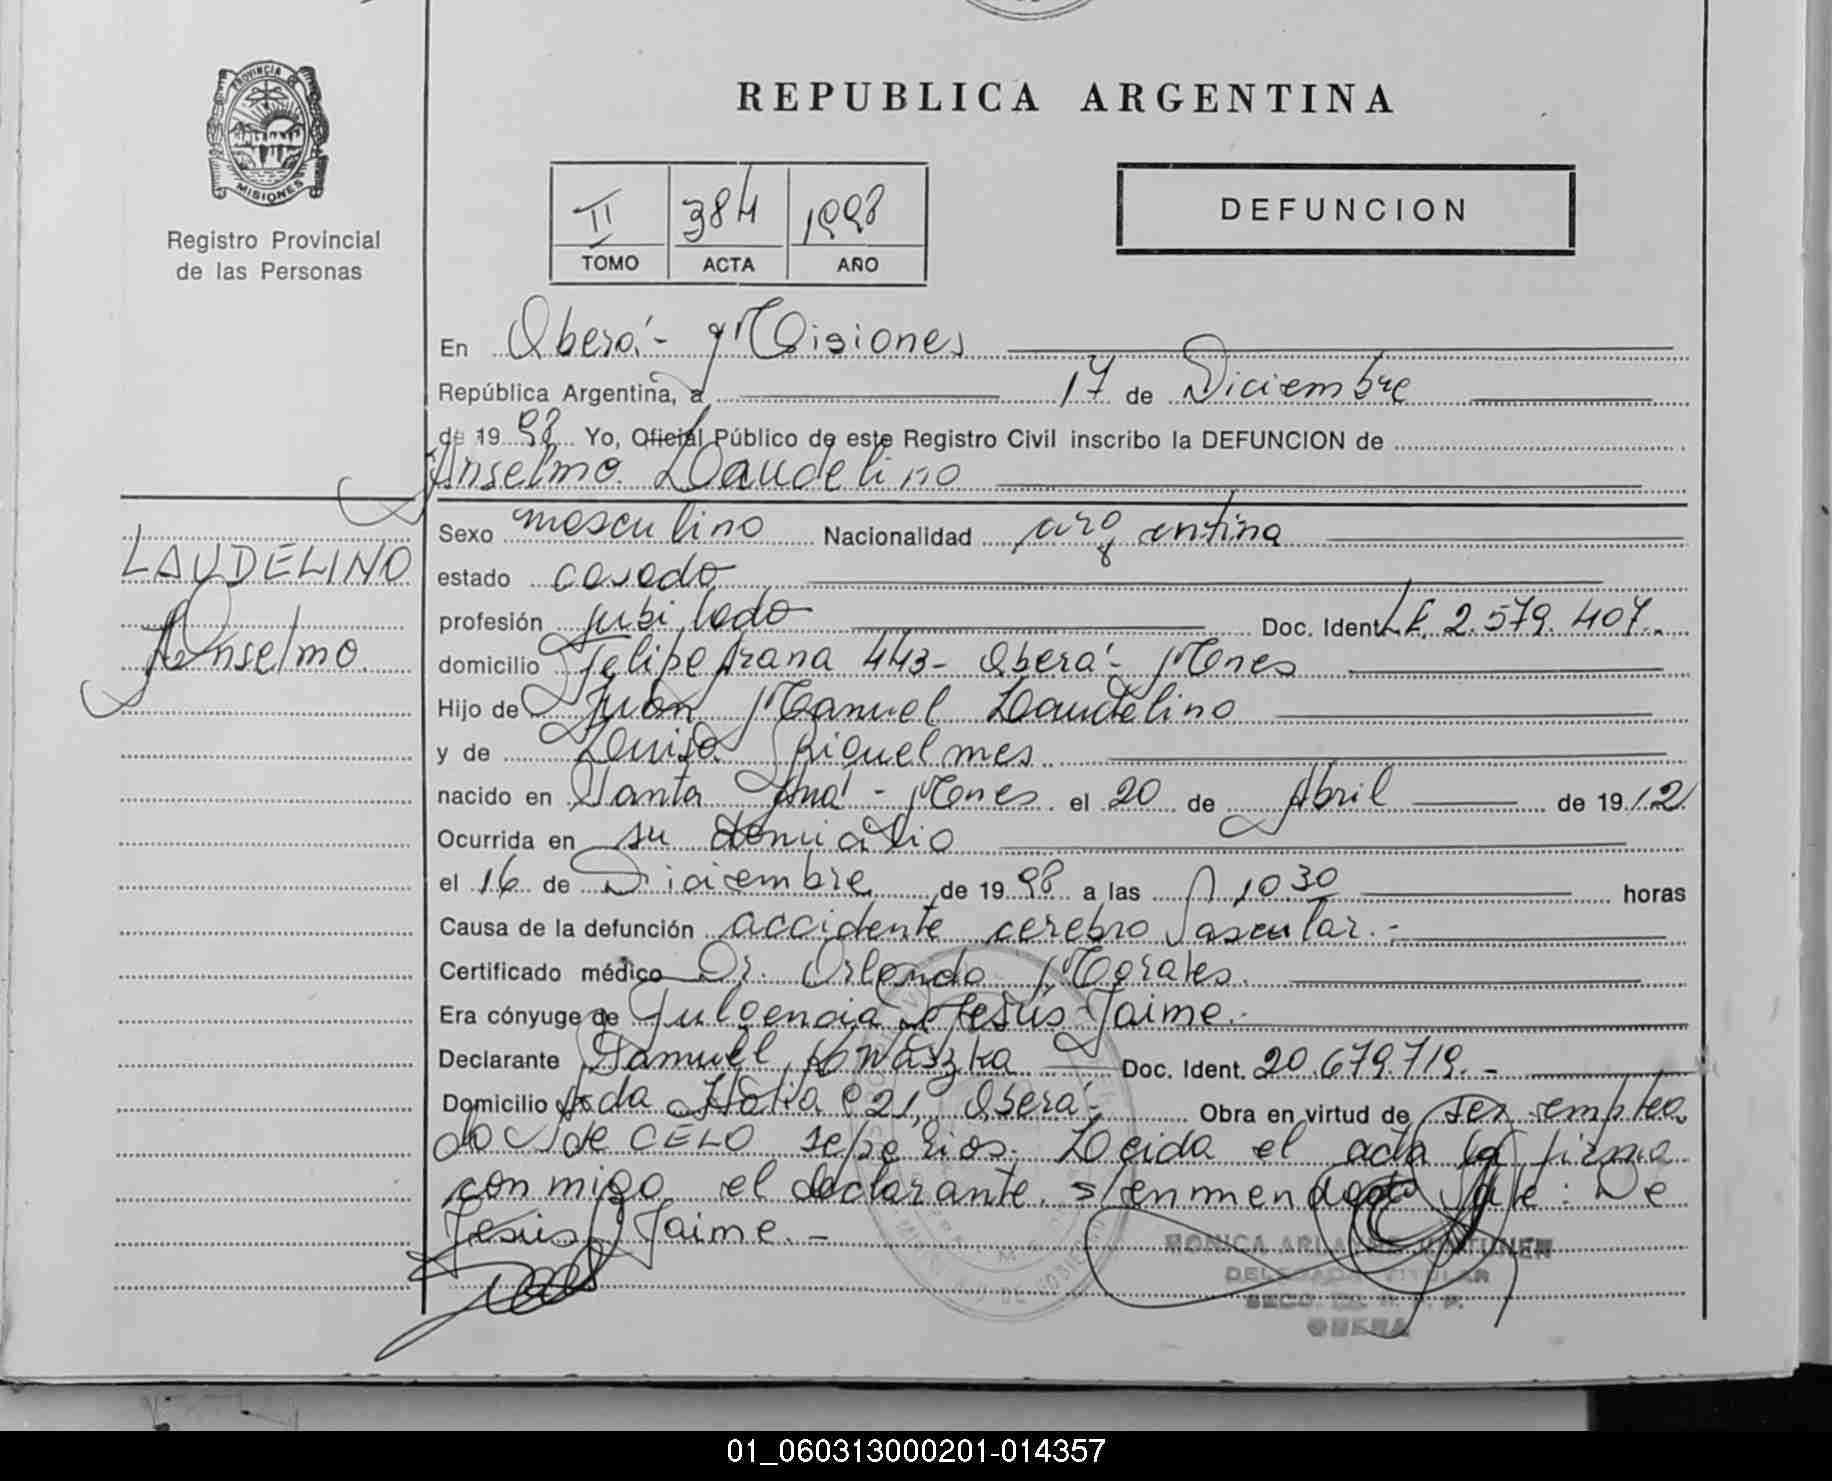 PROVINCIA
MISIONES
Registro Provincial
de las Personas
REPUBLICA ARGENTINA
II 384 1998
TOMO ACTA AÑO
DEFUNCION
En Oberá - Misiones
República Argentina, a 17 de Diciembre
de 1998 Yo, Oficial Público de este Registro Civil inscribo la DEFUNCION de
Anselmo Laudelino
LAUDELINO
Anselmo
Sexo masculino Nacionalidad argentina
estado casado
profesión jubilado Doc. Ident L.E. 2.579.407
domicilio Felipe Arana 443 - Oberá - Mnes
Hijo de Juan Manuel Laudelino
y de Luisa Riquelmes
nacido en Santa Ana - Mnes el 20 de Abril de 1912
Ocurrida en su domicilio
el 16 de Diciembre de 1998 a las 10 30 horas
Causa de la defunción accidente cerebro vascular.-
Certificado médico Dr. Orlando Morales.
Era cónyuge de Fulgencia De Jesús Jaime.-
Declarante Samuel Doc. Ident. 20.679.719.-
Domicilio Avda Italia 921, Oberá - Obra en virtud de ser emplea
do de CELO sepelios. Leida el acta la firma
conmigo el declarante. s/enmendado Vale: De
Jesús Jaime.-
DELEGADA TITULAR
OBERA
01_060313000201-014357